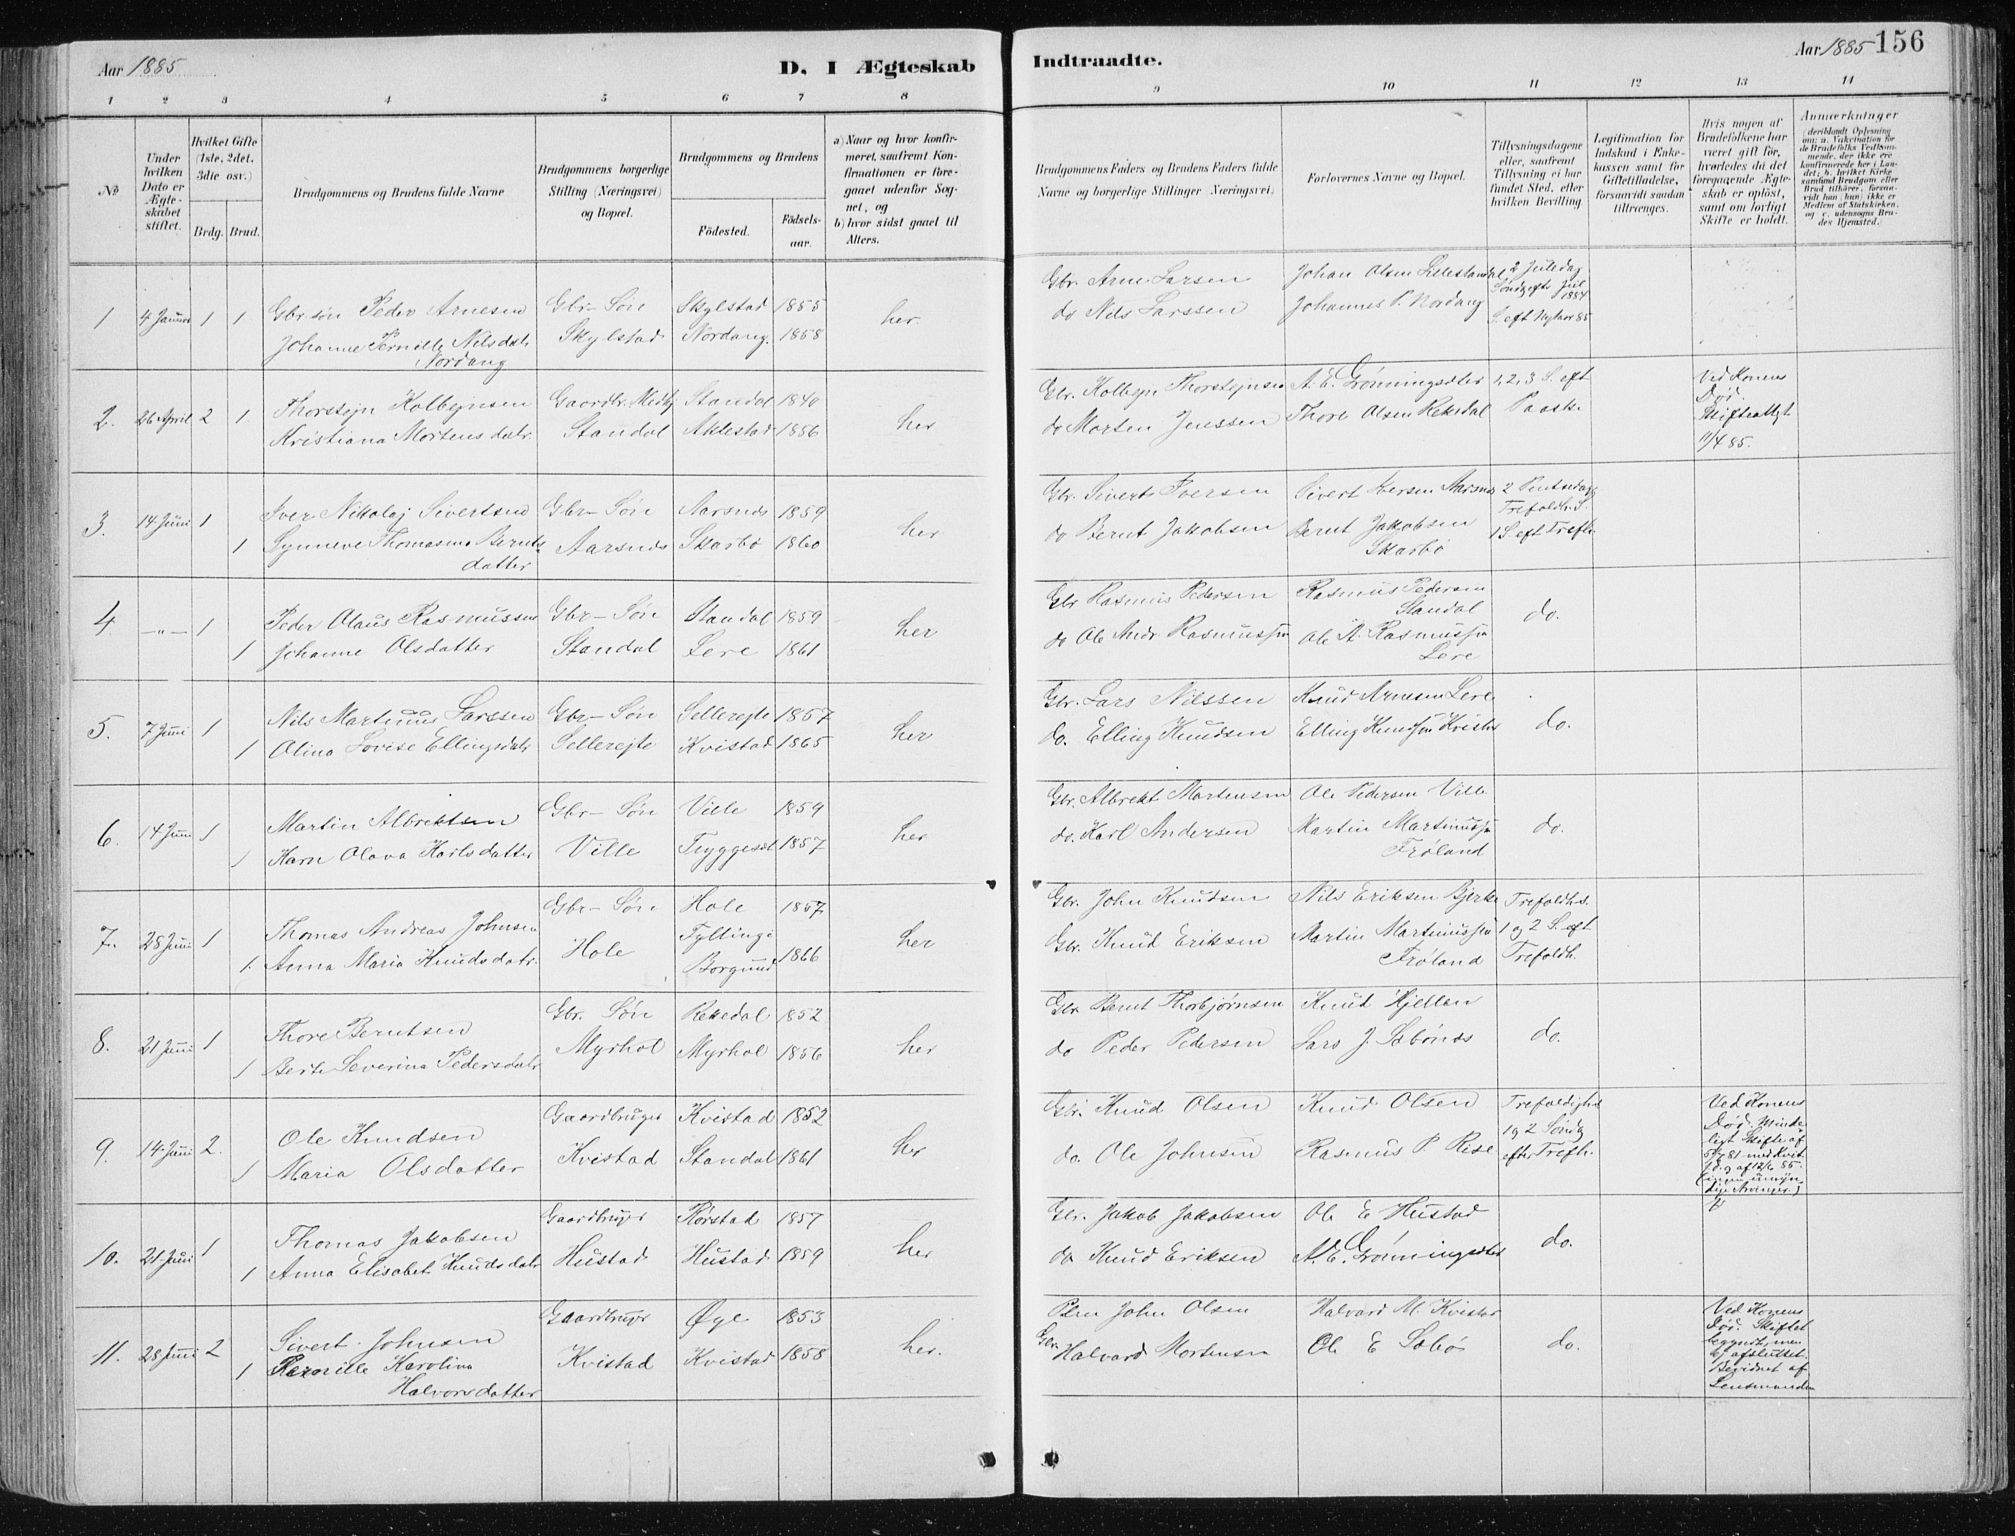 Aar 1885
D. I Ægteskab
Indtraadte.
Aar 1885 156
1 2 3 4 5 6 7 8 9 10 11 12 13 14
No
Under hvilken Dato er Ægteskabet stiftet.
Hvilket Gifte (1ste, 2det, 3die osv.)
Brdg. Brud.
Brudgommens og Brudens fulde Navne
Brudgommens borgerlige Stilling (Næringsvei) og Bopæl.
Brudgommens og Brudens
Födested.
Födselsaar.
a) Naar og hvor konfirmeret, saafremt Konfirmationen er foregaaet udenfor Sognet, og
b) hvor sidst gaaet til Alters.
Brudgommens Faders og Brudens Faders fulde Navne og borgerlige Stillinger (Næringsvei).
Forlovernes Navne og Bopæl.
Tillysningsdagene eller, saafremt Tillysning ei har fundet Sted, efter hvilken Bevilling
Legitimation for Indskud i Enkekassen samt for Giftetilladelse, forsaavidt saadan tiltrænges.
Hvis nogen af Brudefolkene har været gift før, hvorledes da det foregaaende Ægteskab er oplöst, samt om lovligt Skifte er holdt.
Anmærkninger
(deriblandt Oplysning om: a. Vakcination for de Brudefolks Vedkommende, der ikke ere konfirmerede her i Landet; b. hvilket Kirkesamfund Brudgom eller Brud tilhörer, forsaavidt han (hun) ikke er Medlem af Statskirken, og c. udensogns Brudes Hjemsted.
1 4 Januar 1 1 Gbr søn Peder Arnesen Gbr-Søn Skylstad 1855 her.
Johanne Pernille Nilsdatr Nordang Skylstad Nordang. 1858
Gbr. Arne Larsen Johan Olsen 2 Juledag
do Nils Larssen Johannes P. Nordang Søndg eft Jul 1884
S. eft Nytaar 85
2. 26 April 2 1 Thorstejn Kolbejnsen Gaardbr. Standal 1840 her
Kristiana Mortensdatr. Standal Aklestad 1856
Gbr. Kolbejn Thorstejnsen A. E. Grønningsæter 1, 2, 3 S. eft
do Morten Jenssen Thore Olsen Reksdal Paaske
Ved Konens Død. 11/4 85.
3. 14 Juni 1 Iver Nikolaj Sivertsen Gbr-Søn Aarsnes 1859 her
1 Synneve Thomasine Berntsdatter Aarsnes Skarbø 1860
Gbr. Sivert Iversen Sivert Iversen Aarsnes 2 Pintsedag
do Bernt Jakobsen Bernt Jakobsen Skarbø Trefoldh. S.
1 S. eft Trefh.
4 —"— 1 Peder Olaus Rasmussen Gbr-Søn Standal 1859 her
1 Johanne Olsdatter Standal Lere 1861
Gbr Rasmus Pedersen Rasmus Pedersen Standal do.
do Ole Andr Rasmussen Ole A. Rasmussen Lere
5. 7 Juni 1 Nils Martinus Larssen Gbr-Søn Sellerejte 1857 her
1 Olina Lovise Ellingsdatr Sellerejte Kvistad 1865
Gbr. Lars Nilssen Knud Arnesen Lere do.
do. Elling Knudsen Elling Knudsen
6. 14 Juni 1 Martin Albrektsen Gbr-Søn Ville 1859 her
1 Karn Olava Karlsdatter Ville 1857
Gbr. Albrekt Mortensen Ole Pedersen Ville do.
do. Karl Andersen Martin Martinussen Frøland
7. 28 Juni 1 Thomas Andreas Johnsen Gbr-Søn Hole 1857 her
1. Anna Maria Knudsdatr. Hole Borgund 1866
Gbr. John Knudsen Nils Eriksen Bjerke Trefoldh s.
Gbr. Knud Eriksen Martin Martinussen Frøland 1 og 2 S. eft Trefoldh.
8. 21 Juni 1 Thore Berntsen Gbr. Søn Reksdal 1852 her
1 Berte Severina Pedersdatr Myrhol Myrhol 1856
Gbr Bernt Thorbjørnsen Knud do.
do Peder Pedersen Lars J. Sæbønes
9 14 Juni 2. Ole Knudsen Gaardbruger Kvistad 1852 her
1 Maria Olsdatter Kvistad Standal 1861
Gbr. Knud Olsen Knud Olsen Trefoldighs
do. Ole Johnsen Rasmus P. Rise 1 og 2 Søndg efter Trefh.
Ved Konens Død.
10. 21 Juni 1 Thomas Jakobsen Gaardbruger Rørstad 1857 her
1 Anna Elisabet Knudsdatr Hustad Hustad 1859
Gbr. Jakob Jakobsen Ole E Hustad do.
do Knud Eriksen A. E. Grønningsæter
11. 28 Juni 2 Sivert Johnsen Gaardbruger Øye 1853 her.
1 Pernille Karolina Halvorsdatter Kvistad Kvistad 1858
John Olsen Halvard M. Kvistad do.
Gbr. Halvard Mortensen Ole E Sæbø
Ved Konens Død. Skiftet begyndt, men ej afsluttet. Bevidnet af Lensmanden